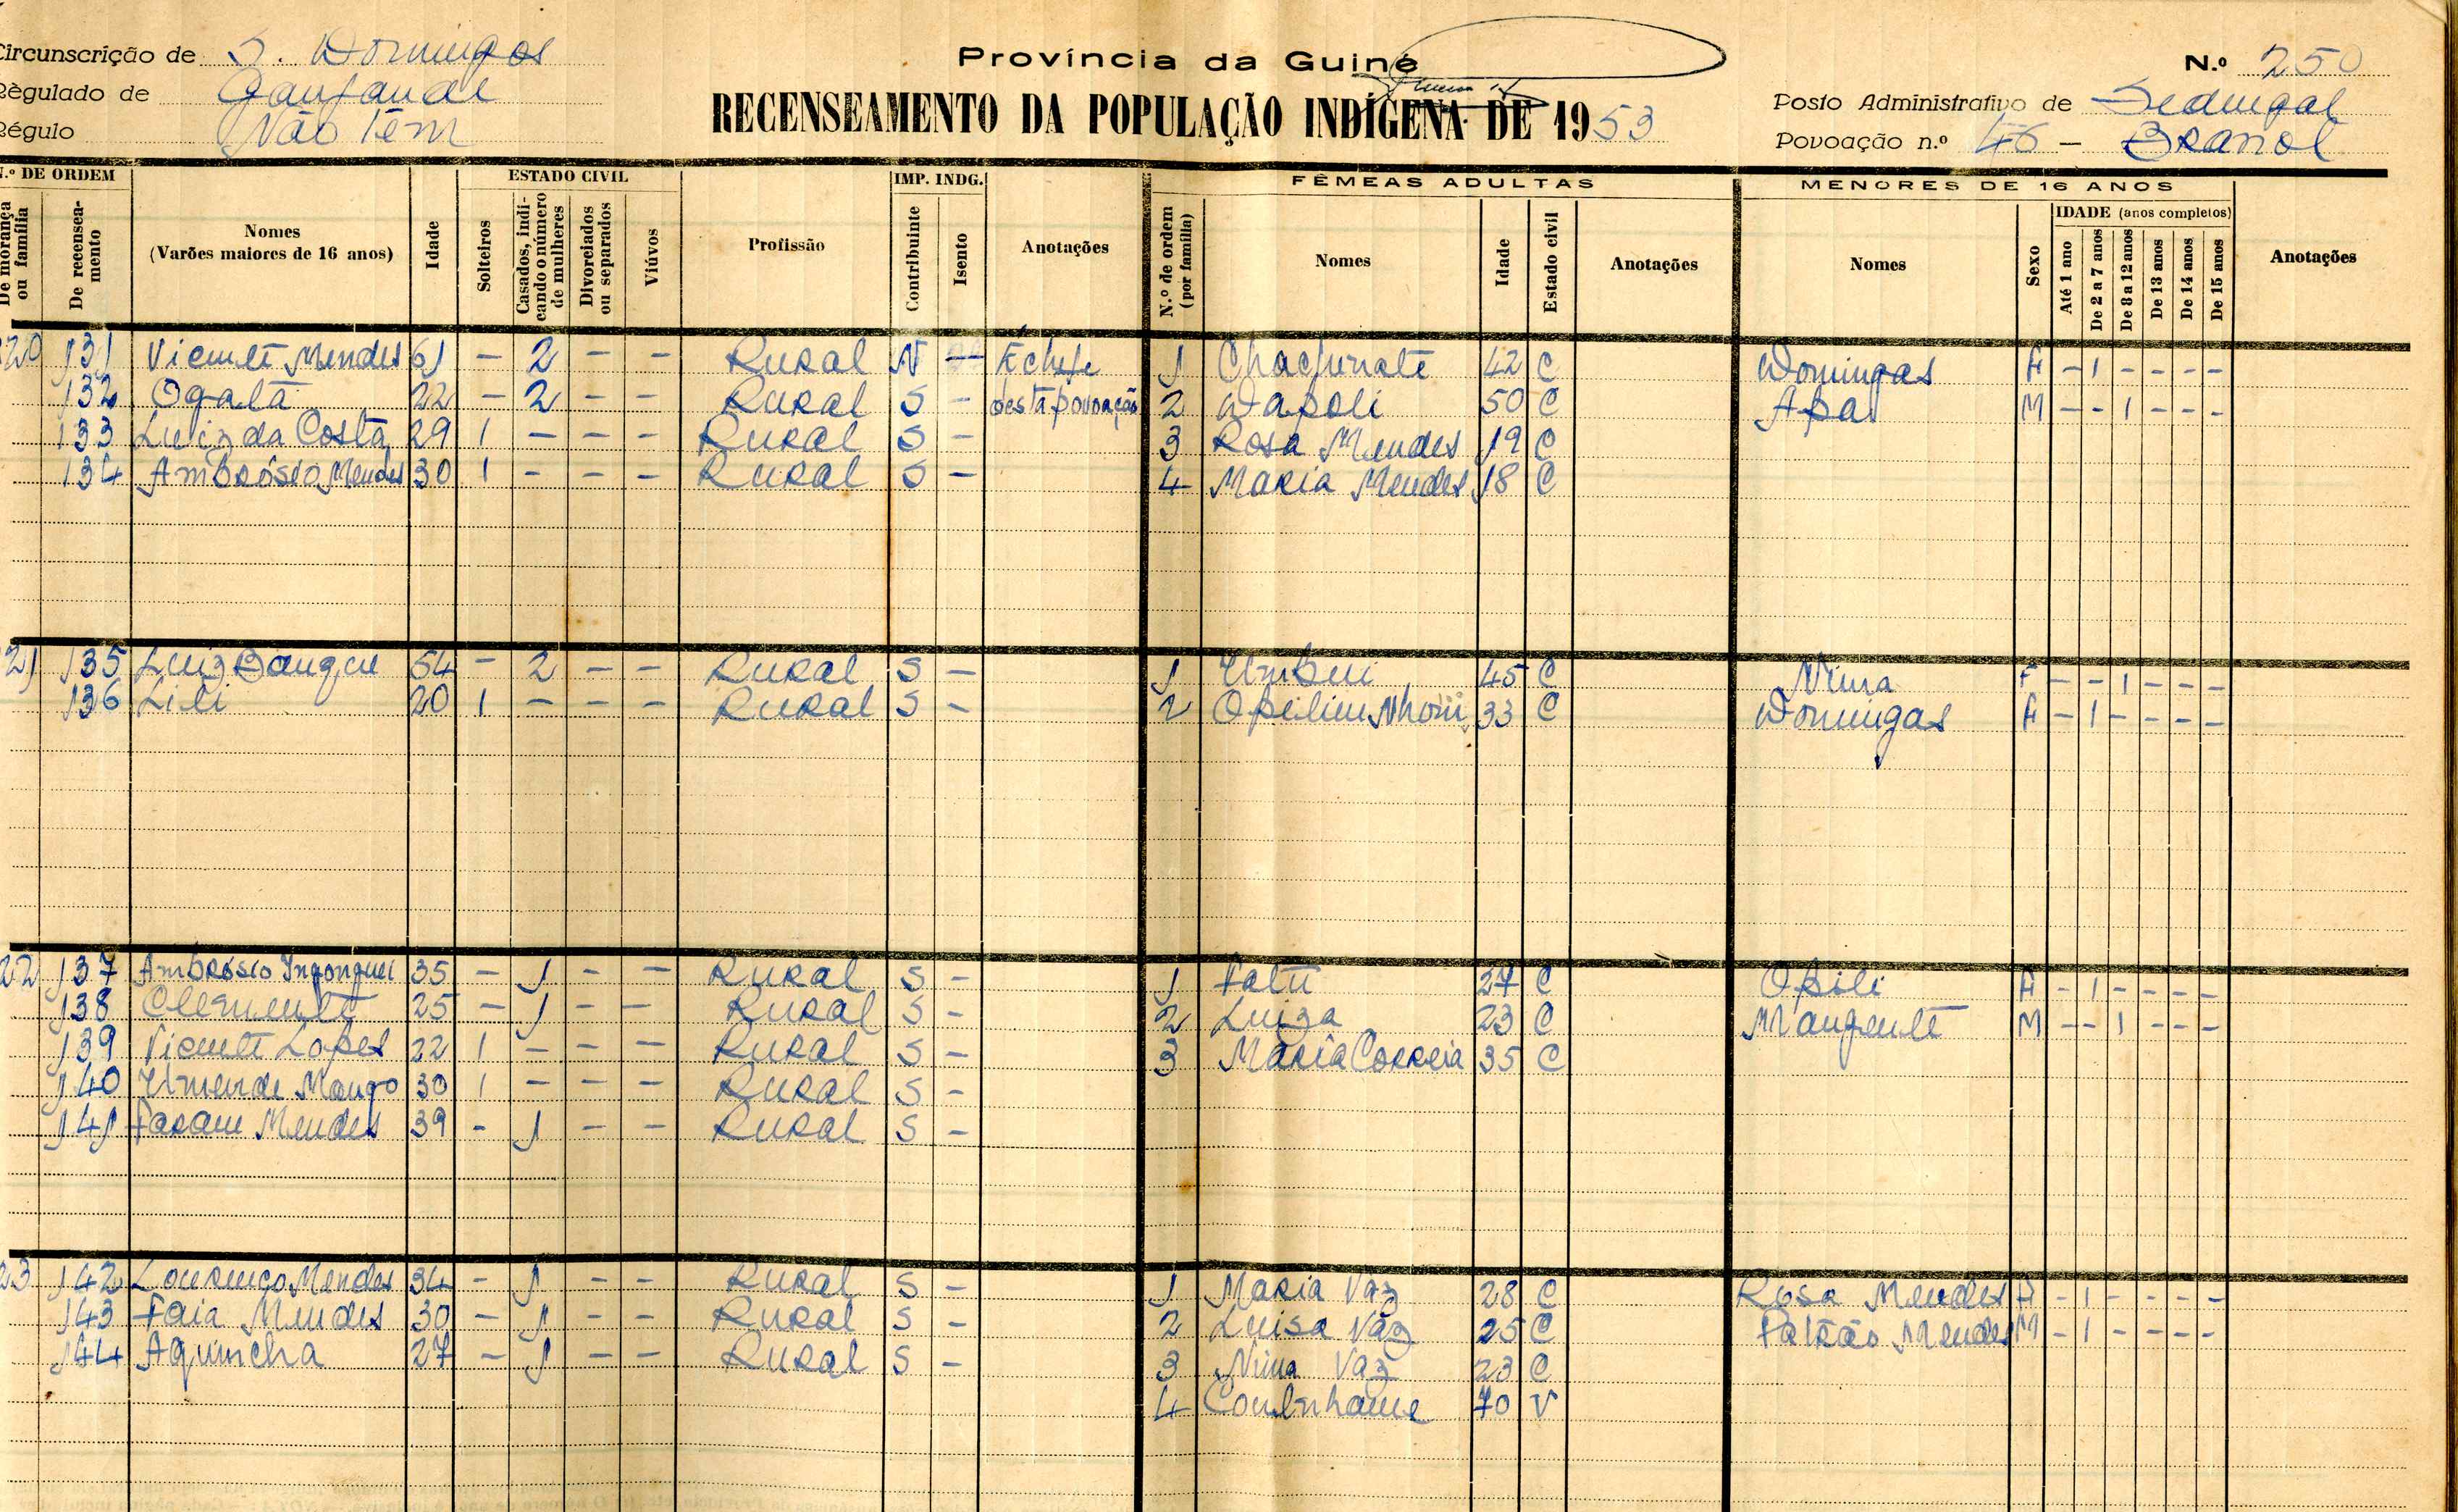 Circunscrição de S. Domingos
Règulado de
Régulo Não Tem
Província da Guiné
RECENSEAMENTO DA POPULAÇÃO INDÍGENA DE 1953
N.º 250
Posto Administrativo de Sedengal
Povoação n.º 46 -
N.º DE ORDEM ESTADO CIVIL IMP. INDG. FÊMEAS ADULTAS MENORES DE 16 ANOS
De morança ou família De recenseamento Nomes (Varões maiores de 16 anos) Idade Solteiros Casados, indicando o número de mulheres Divorciados ou separados Viúvos Profissão Contribuinte Isento Anotações N.º de ordem (por família) Nomes Idade Estado civil Anotações Nomes Sexo IDADE (anos completos) Até 1 ano De 2 a 7 anos De 8 a 12 anos De 13 anos De 14 anos De 15 anos Anotações
20 131 Vicente Mendes 61 - 2 - - Rural N - É chefe 1 42 C Domingas F - 1 - - - -
132 Ogata 22 - 2 - - Rural S - desta povoação 2 Dapoli 50 C Apa M - - 1 - - -
133 Luiz da Costa 29 1 - - - Rural S - 3 Rosa Mendes 19 C
134 Ambrósio Mendes 30 1 - - - Rural S - 4 Maria Mendes 18 C
21 135 Luiz 54 - 2 - - Rural S - 1 Umbui 45 C Nina F - - 1 - - -
136 Lili 20 1 - - - Rural S - 2 33 C Domingas F - 1 - - - -
22 137 Ambrósio Ingonguei 35 - 1 - - Rural S - 1 Fatu 27 C Opili F - 1 - - - -
138 Clemente 25 - 1 - - Rural S - 2 Luiza 23 C Mangente M - - 1 - - -
139 Vicente Lopes 22 1 - - - Rural S - 3 Maria Correia 35 C
140 Umende Mango 30 1 - - - Rural S -
141 Mendes 39 - 1 - - Rural S -
23 142 Lourenço Mendes 34 - 1 - - Rural S - 1 Maria Vaz 28 C Rosa Mendes F - 1 - - - -
143 Faia Mendes 30 - 1 - - Rural S - 2 Luisa Vaz 25 C Patrão Mendes M - 1 - - - -
144 Aquincha 27 - 1 - - Rural S - 3 Nina Vaz 23 C
4 70 V